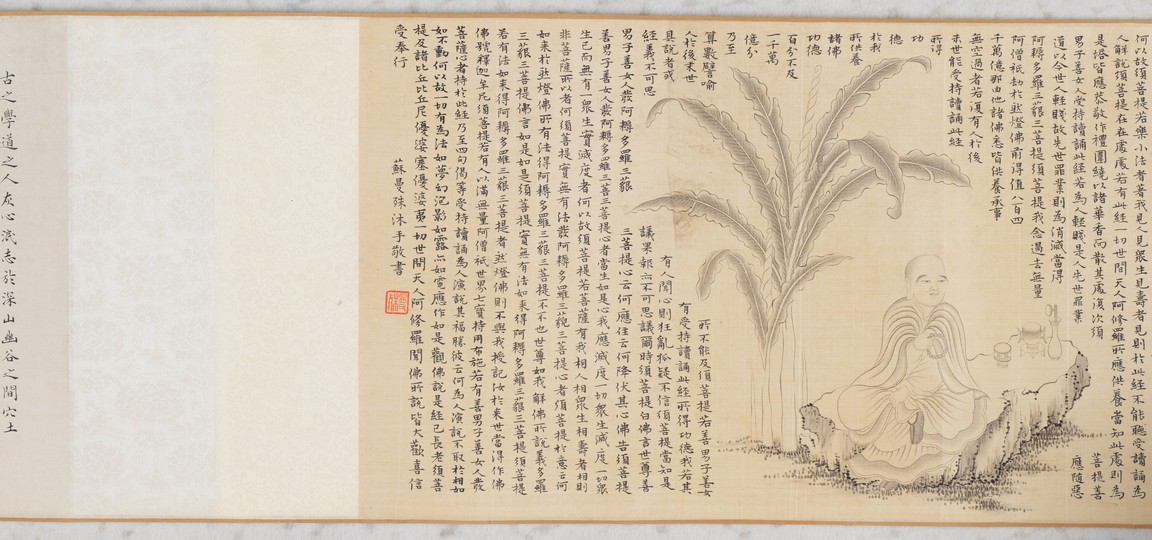 何以故須菩提若樂小法者著我見人見眾生見壽者見則於此經不能聽受讀誦為
人解說須菩提在在處處若有此經一切世間天人阿修羅所應供養當知此處則為
是塔皆應恭敬作禮圍繞以諸華香而散其處復次須
菩提善
男子善女人受持讀誦此經若為人輕賤是人先世罪業
應墮惡
道以今世人輕賤故先世罪業則為消滅當得
阿耨多羅三藐三菩提須菩提我念過去無量
阿僧祇劫於然燈佛前得值八百四
千萬億那由他諸佛悉皆供養承事
無空過者若復有人於後
末世能受持讀誦此經
所得
功
德
於我
所供養
諸佛
功德
百分不及
一千萬
億分
乃至
算數譬喻
所不能及須菩提若善男子善女
人於後末世
有受持讀誦此經所得功德我若
具說者或
有人聞心則狂亂狐疑不信須菩提當知是
經義不可思
議果報亦不可思議爾時須菩提白佛言世尊善
男子善女人發阿耨多羅三藐
三菩提心云何應住云何降伏其心佛告須菩提
善男子善女人發阿耨多羅三藐三菩提心者當生如是心我應滅度一切眾生滅度一切眾
生已而無有一眾生實滅度者何以故須菩提若菩薩有我相人相眾生相壽者相則
非菩薩所以者何須菩提實無有法發阿耨多羅三藐三菩提心者須菩提於意云何
如來於然燈佛所有法得阿耨多羅三藐三菩提不不也世尊如我解佛所說義
三藐三菩提佛言如是如是須菩提實無有法如來得阿耨多羅三藐三菩提須菩提
若有法如來得阿耨多羅三藐三菩提者然燈佛則不與我授記汝於來世當得作佛
佛號釋迦牟尼須菩提若有人以滿無量阿僧祇世界七寶持用布施若有善男子善女人發
菩薩心者持於此經乃至四句偈等受持讀誦為人演說其福勝彼云何為人演說不取於相如
如不動何以故一切有為法如夢幻泡影如露亦如電應作如是觀佛說是經已長老須菩
提及諸比丘比丘尼優婆塞優婆夷一切世間天人阿修羅聞佛所說皆大歡喜信
受奉行
蘇曼殊沐手敬書
古之學道之人灰心泯志於深山幽谷之間穴土